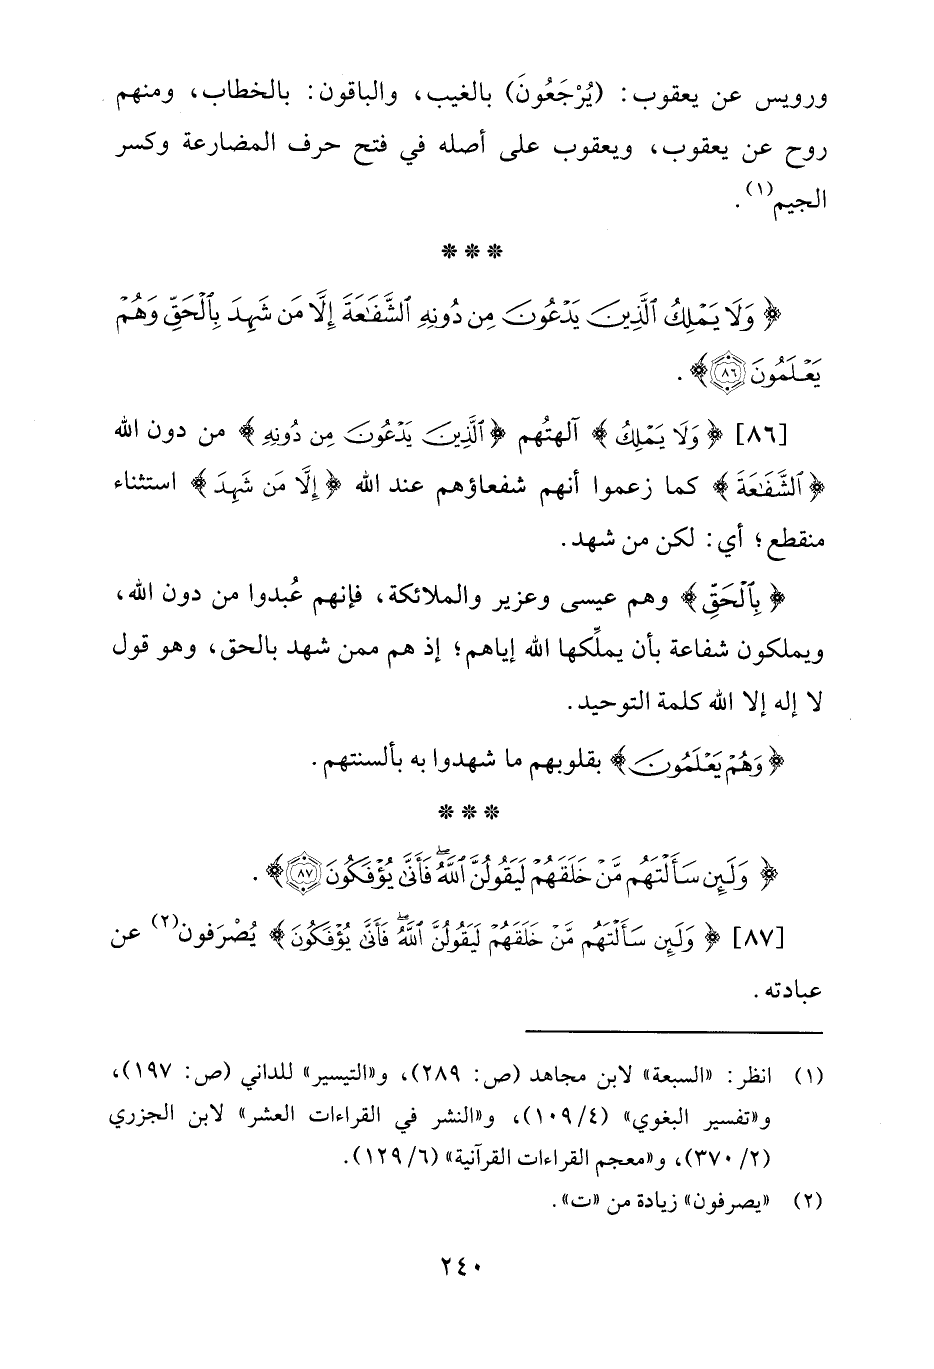 ورويس عن يعقوب: (يُرْجَعُونَ) بالغيب، والباقون: بالخطاب، ومنهم
روح عن يعقوب، ويعقوب على أصله في فتح حرف المضارعة وكسر
الجيم(١).
* * *
﴿ وَلَا يَمْلِكُ الَّذِينَ يَدْعُونَ مِن دُونِهِ الشَّفَاعَةَ إِلَّا مَن شَهِدَ بِالْحَقِّ وَهُمْ
يَعْلَمُونَ ٨٦ ﴾.
[٨٦] ﴿ وَلَا يَمْلِكُ ﴾ آلهتُهم ﴿ الَّذِينَ يَدْعُونَ مِن دُونِهِ ﴾ من دون الله
﴿ الشَّفَاعَةَ ﴾ كما زعموا أنهم شفعاؤهم عند الله ﴿ إِلَّا مَن شَهِدَ ﴾ استثناء
منقطع؛ أي: لكن من شهد.
﴿ بِالْحَقِّ ﴾ وهم عيسى وعزير والملائكة، فإنهم عُبدوا من دون الله،
ويملكون شفاعة بأن يملِّكها الله إياهم؛ إذ هم ممن شهد بالحق، وهو قول
لا إله إلا الله كلمة التوحيد.
﴿ وَهُمْ يَعْلَمُونَ ﴾ بقلوبهم ما شهدوا به بألسنتهم.
* * *
﴿ وَلَئِن سَأَلْتَهُم مَّنْ خَلَقَهُمْ لَيَقُولُنَّ اللَّهُ ۖ فَأَنَّىٰ يُؤْفَكُونَ ٨٧ ﴾.
[٨٧] ﴿ وَلَئِن سَأَلْتَهُم مَّنْ خَلَقَهُمْ لَيَقُولُنَّ اللَّهُ ۖ فَأَنَّىٰ يُؤْفَكُونَ ﴾ يُصْرَفون(٢) عن
عبادته.
(١) انظر: «السبعة» لابن مجاهد (ص: ٢٨٩)، و«التيسير» للداني (ص: ١٩٧)،
و«تفسير البغوي» (٤/ ١٠٩)، و«النشر في القراءات العشر» لابن الجزري
(٢/ ٣٧٠)، و«معجم القراءات القرآنية» (٦/ ١٢٩).
(٢) «يصرفون» زيادة من «ت».
٢٤٠